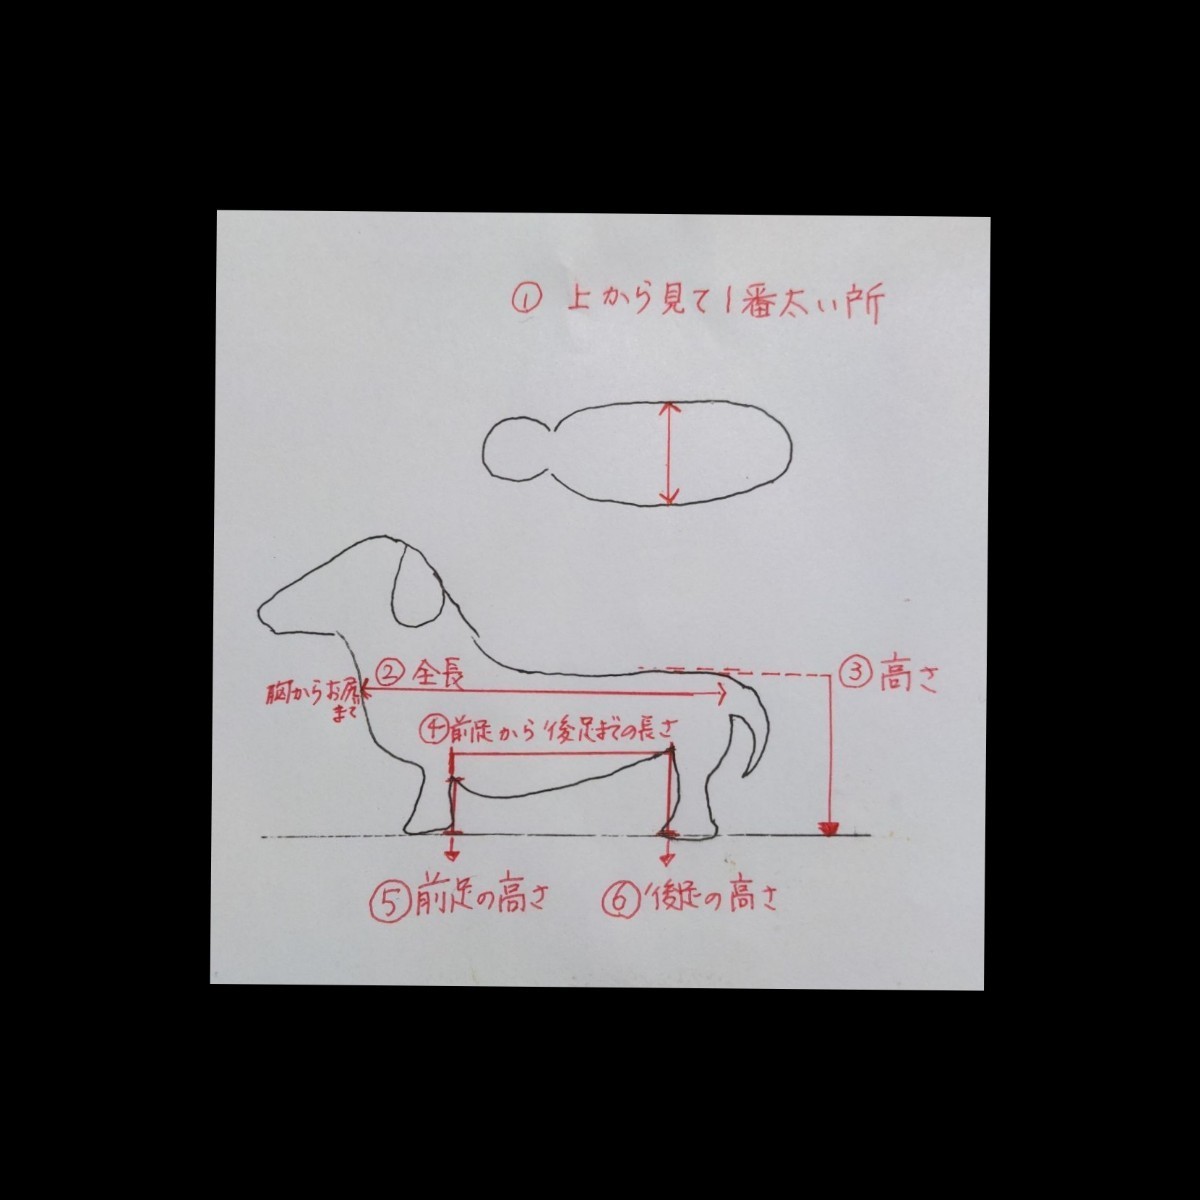 ① 上から見て1番太い所
② 全長
胸からお尻
まで
③ 高さ
④前足から後足までの長さ
⑤前足の高さ
⑥後足の高さ